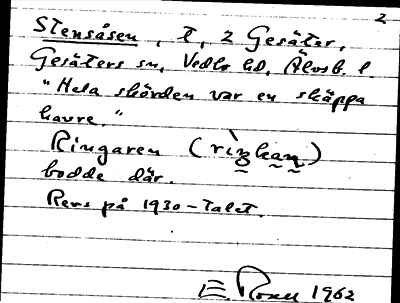 2
Stensåsen, t, 2 Gesäter,
Gesäters sn, Vedbo hd, Älvsb. l
"Hela skörden var en skäppa
havre."
Ringaren (
bodde där.
Revs på 1930-talet.
E. Rosell 1962